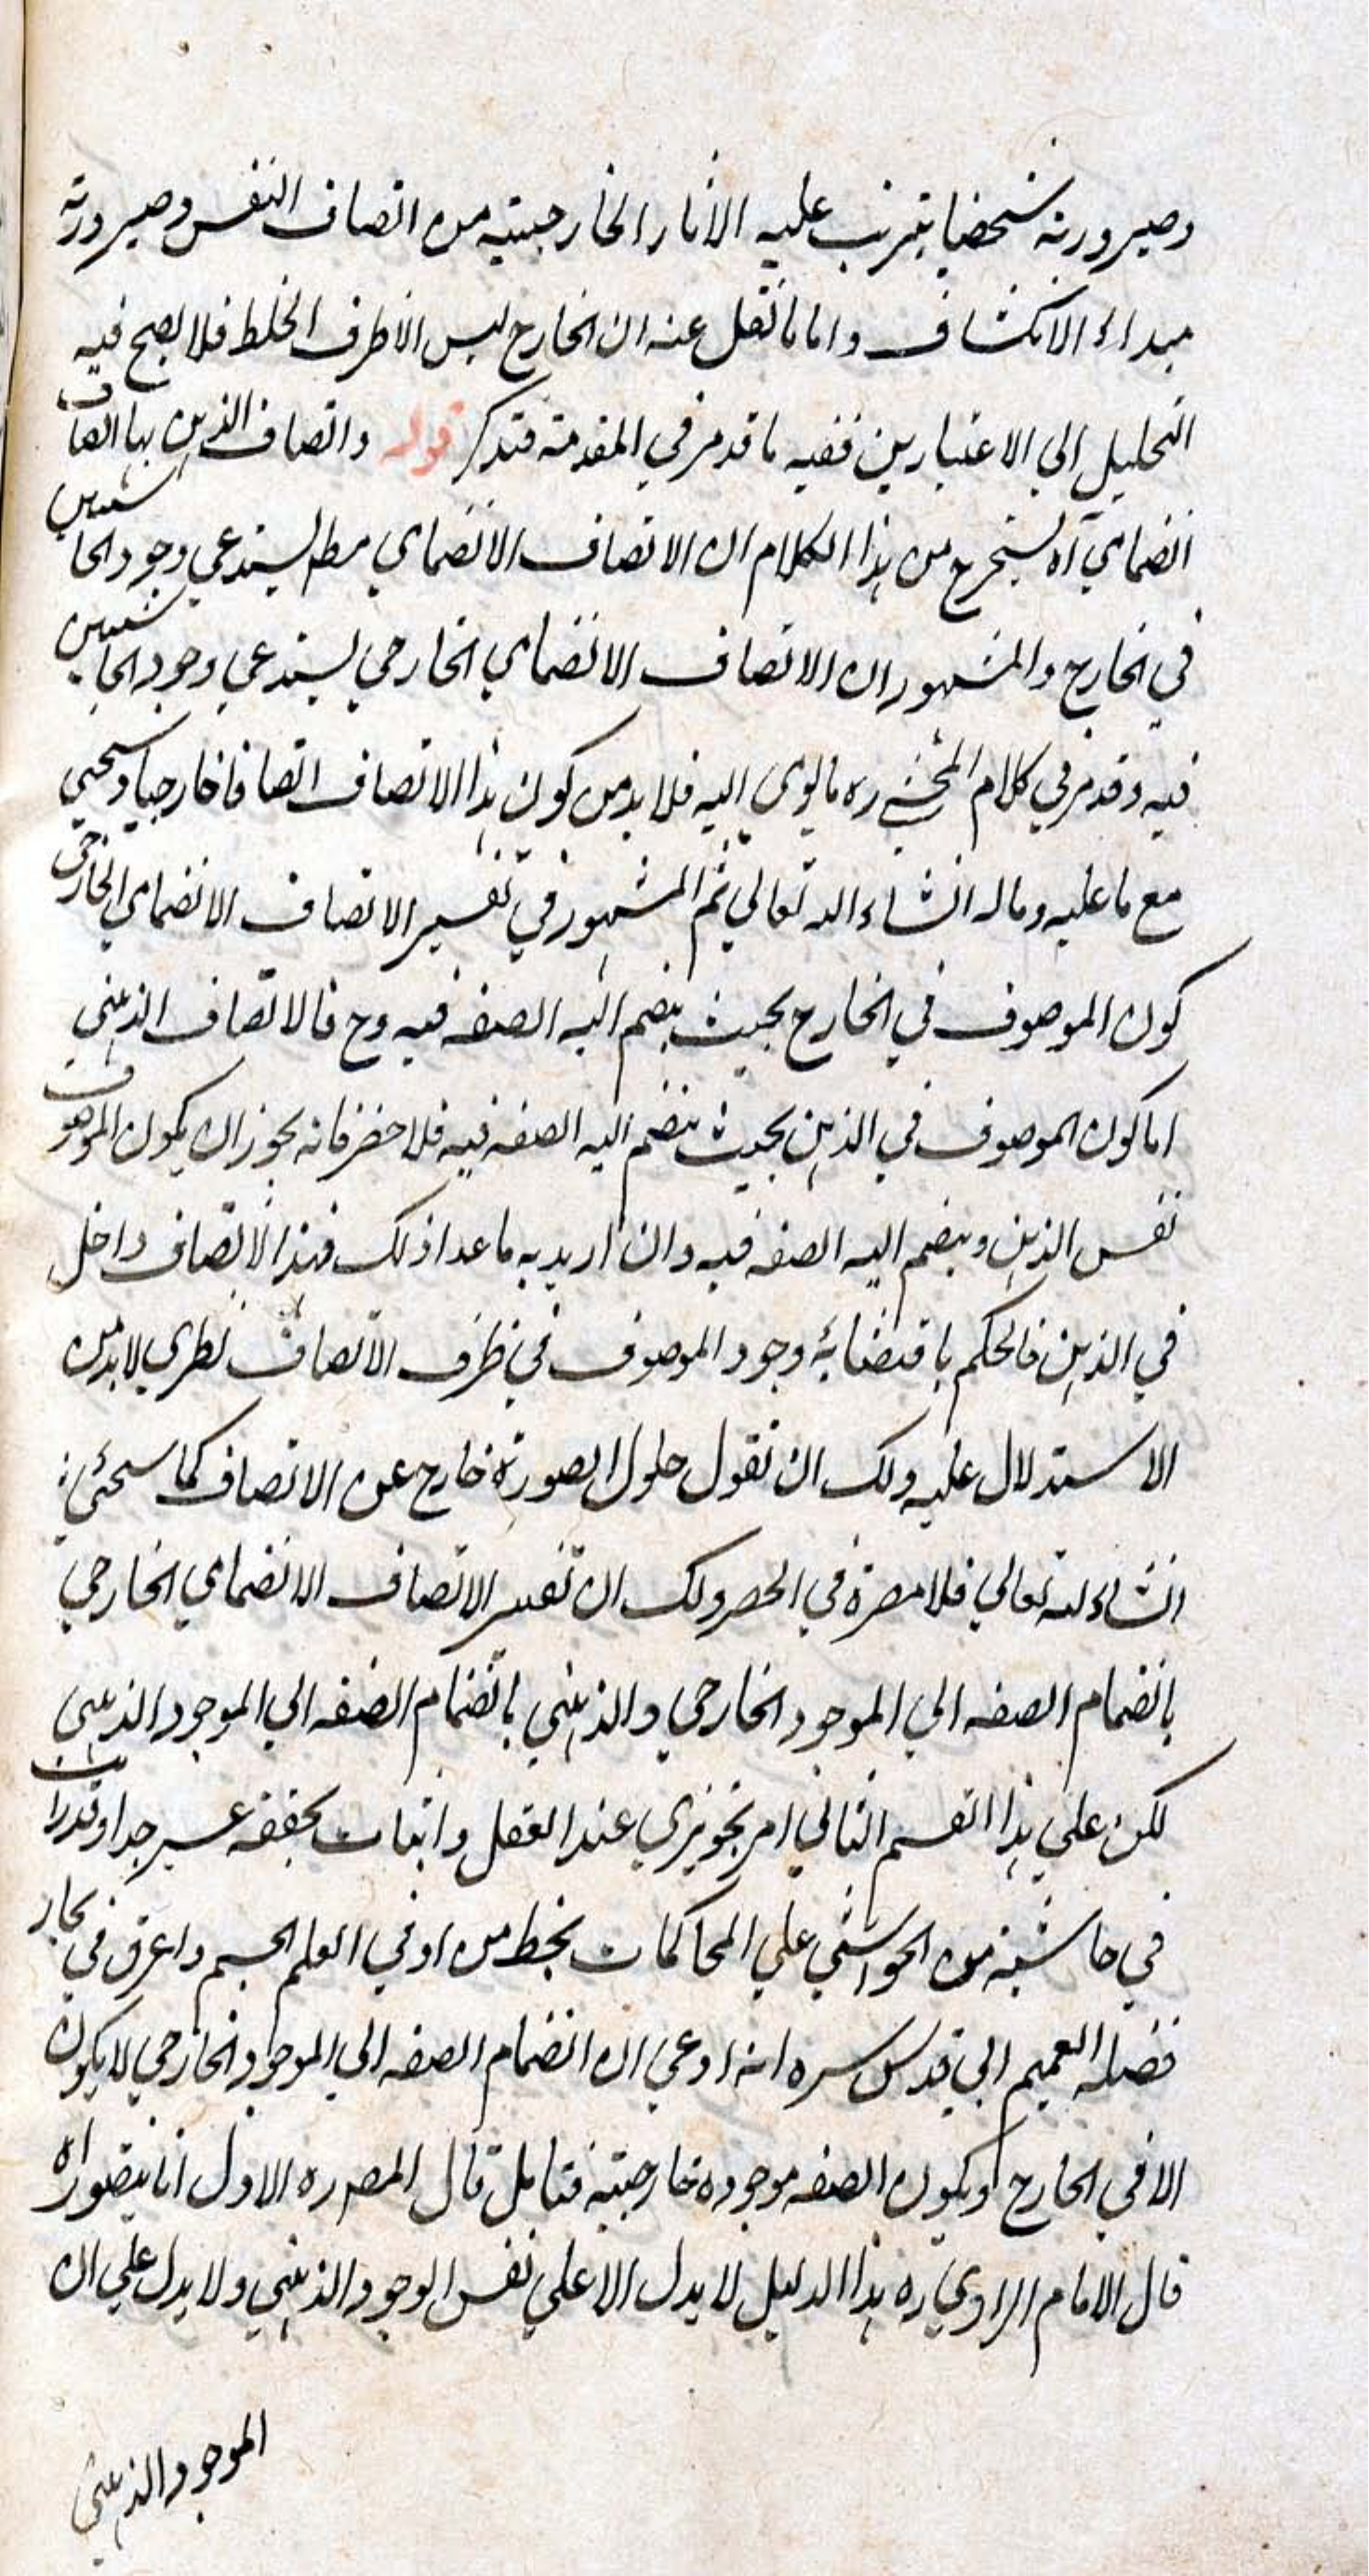 وصيرورته شخصا يترتب عليه الآثار الخارجية من اتصاف النفس وصيرورته
مبداء الانكشاف واما ما نقل عنه ان الخارج ليس الا ظرف الخلط فلا يصح فيه
التحليل الي الاعتبارين ففيه ما قد مر في المقدمة فتذكر قوله واتصاف الذهن بها اتصاف
انضمامي آه يستخرج من هذا الكلام ان الاتصاف الانضمامي مط يستدعي وجود الحاشيتين
في الخارج والمشهور ان الاتصاف الانضمامي الخارجي يستدعي وجود الحاشيتين
فيه وقد مر في كلام المحشي ره ما يومي اليه فلا بد من كون هذا الاتصاف اتصافا خارجيا وسيجيئ
مع ما عليه وماله انشاء الله تعالي ثم المشهور في تفسير الاتصاف الانضمامي الخارجي
كون الموصوف في الخارج بحيث ينضم اليه الصفة فيه وح فالاتصاف الذهني
اما كون الموصوف في الذهن بحيث ينضم اليه الصفة فيه فلا حصر فانه يجوز ان يكون الموصوف
نفس الذهن وينضم اليه الصفة فيه وان اريد به ما عدا ذلك فهذا الاتصاف داخل
في الذهن فالحكم باقتضائه وجود الموصوف في ظرف الاتصاف نظري لا بد من
الاستدلال عليه ولك ان تقول حلول الصورة خارج عن الاتصاف كما سيجئ
انشاء لله تعالي فلا مضرة في الحصر ولك ان تفسر الاتصاف الانضمامي الخارجي
بانضمام الصفة الي الموجود الخارجي والذهني بانضمام الصفة الي الموجود الذهني
لكن علي هذا القسم الثاني امر تجويزي عند العقل واثبات تحققه عسير جدا وقد رايت
في حاشية من الحواشي علي المحاكمات بخط من اوفي العلم الجسيم واغرق في بحار
فضله العميم ابي قدس سره انه ادعي ان انضمام الصفة الي الموجود الخارجي لا يكون
الا في الخارج ويكون الصفة موجودة خارجية فتامل قال المصـ ره الاول انا نتصور اه
قال الامام الرازي ره هذا الدليل لا يدل الا علي نفس الوجود الذهني ولا يدل علي ان
الموجود الذهني